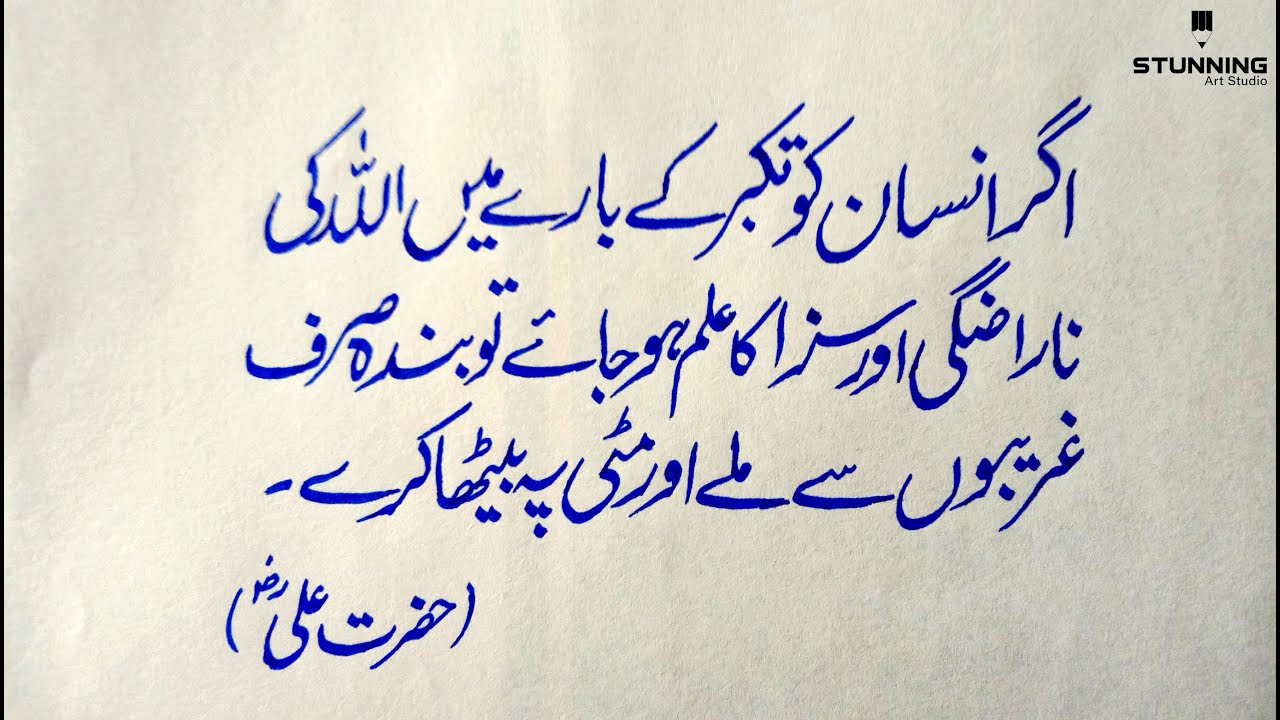 STUNNING
Art Studio
اگر انسان کو تکبر کے بارے میں اللہ کی
ناراضگی اور سزا کا علم ہو جائے تو بندہ صرف
غریبوں سے ملے اور مٹی پہ بیٹھا کرے ۔
(حضرت علیؓ)